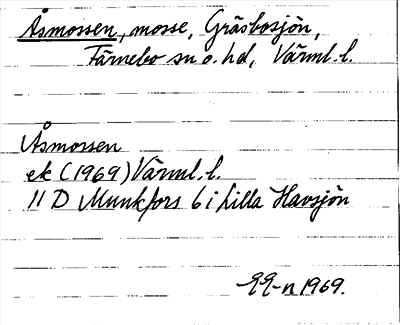 Åsmossen, mosse, Gräsbosjön,
Färnebo sn o. hd, Värml. l.
Åsmossen
ek (1969) Värml. l.
11 D Munkfors 6 i Lilla Havsjön
EE-n 1969.